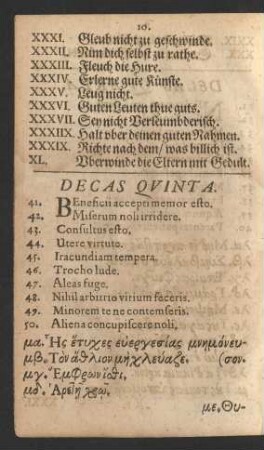 10.
XXXI. Gleub nicht zu geschwinde.
XXXII. Nim dich selbst zu rathe.
XXXIII. Fleuch die Hure.
XXXIV. Erlerne gute Künste.
XXXV. Leug nicht.
XXXVI. Guten Leuten thue guts.
XXXVII. Sey nicht Verleumbderisch.
XXXIIX. Halt vber deinen guten Nahmen.
XXXIX. Richte nach dem / was billich ist.
XL. Vberwinde die Eltern mit Gedult.
DECAS QVINTA.
41. BEneficii accepti memor esto.
42. Miserum noli irridere.
43. Consultus esto.
44. Utere virtute.
45. Iracundiam tempera.
46. Trocho lude.
47. Aleas fuge.
48. Nihil arbitrio virium feceris.
49. Minorem te ne contemseris.
50. Aliena concupiscere noli.
μα. Ἧς ἔτυχες εὐεργεσίας μνημόνευ-
μβ. Τὸν ἄθλιον μὴ χλεύαζε. (σον.
μγ. Ἔμφρων ἴσθι,
μδ. Ἀρετῇ χρῶ.
με. Θυ-